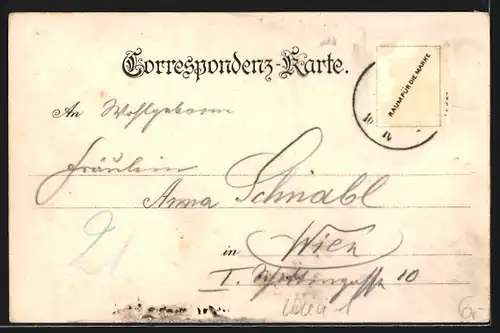 Correspondenz-Karte.
RAUM FÜR DIE MARKE
10 IV
An Wohlgeboren
Fräulein
Anna Schnabl
in Wien
I. Schottengasse 10
21
Wien 1